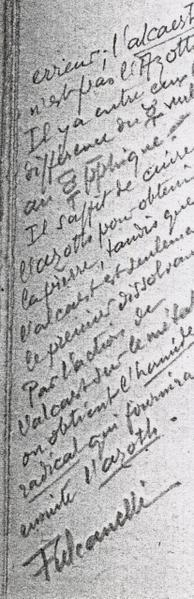 erreur; l'alcaest
n'est pas l'Azoth
Il y a entre eux
différence du ☿ vul
au ☿ phique
Il suffit de cuire
l'azoth pour obtenir
la pierre, tandis que
l'alcaest est seulement
le premier dissolvan
Par l'action de
l'alcaest sur le métal
on obtient l'humide
radical qui fournira
ensuite l'azoth.
Fulcanelli